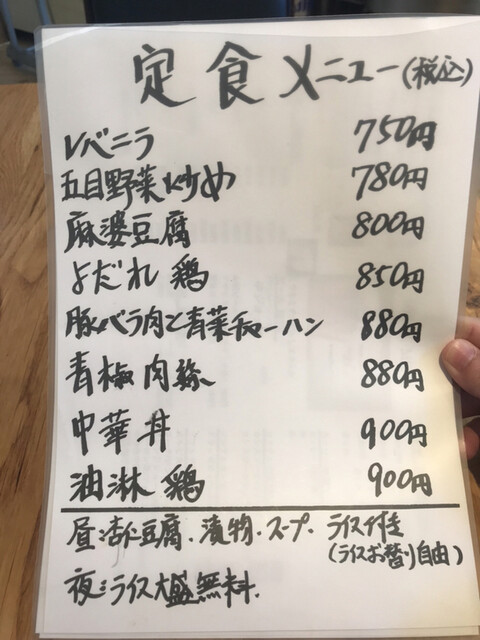 定食メニュー(税込)
レバニラ 750円
五目野菜炒め 780円
麻婆豆腐 800円
よだれ鶏 850円
豚バラ肉と青菜チャーハン 880円
青椒肉絲 880円
中華丼 900円
油淋鶏 900円
昼:杏仁豆腐、漬物、スープ、ライス付
(ライスお替り自由)
夜:ライス大盛無料.